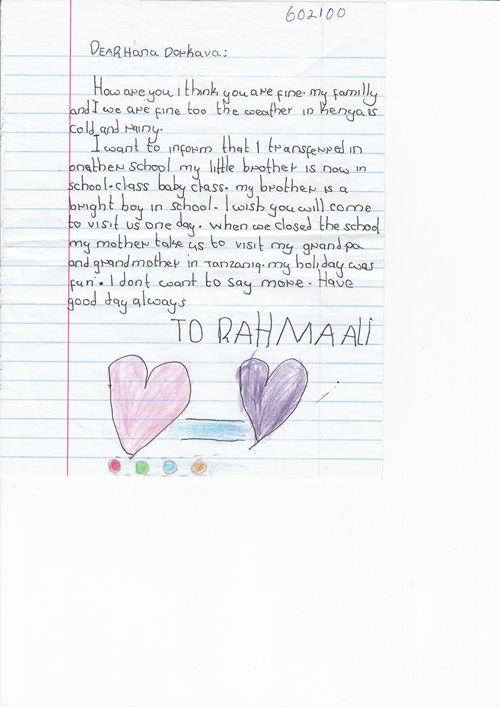 602100
DEAR Hana Dorkava:
How are you I think you are fine. my familly
and I we are fine too the weather in Kenya is
cold and rainy.
I want to inform that I transferred in
onather school my little brother is now in
school-class baby class. my brother is a
bright boy in school. I wish you will come
to visit us one day. when we closed the school
my mother take us to visit my grandpa
and grandmother in Tanzania. my holiday was
fun. I dont want to say more. Have
good day always
TO RAHMA ALI